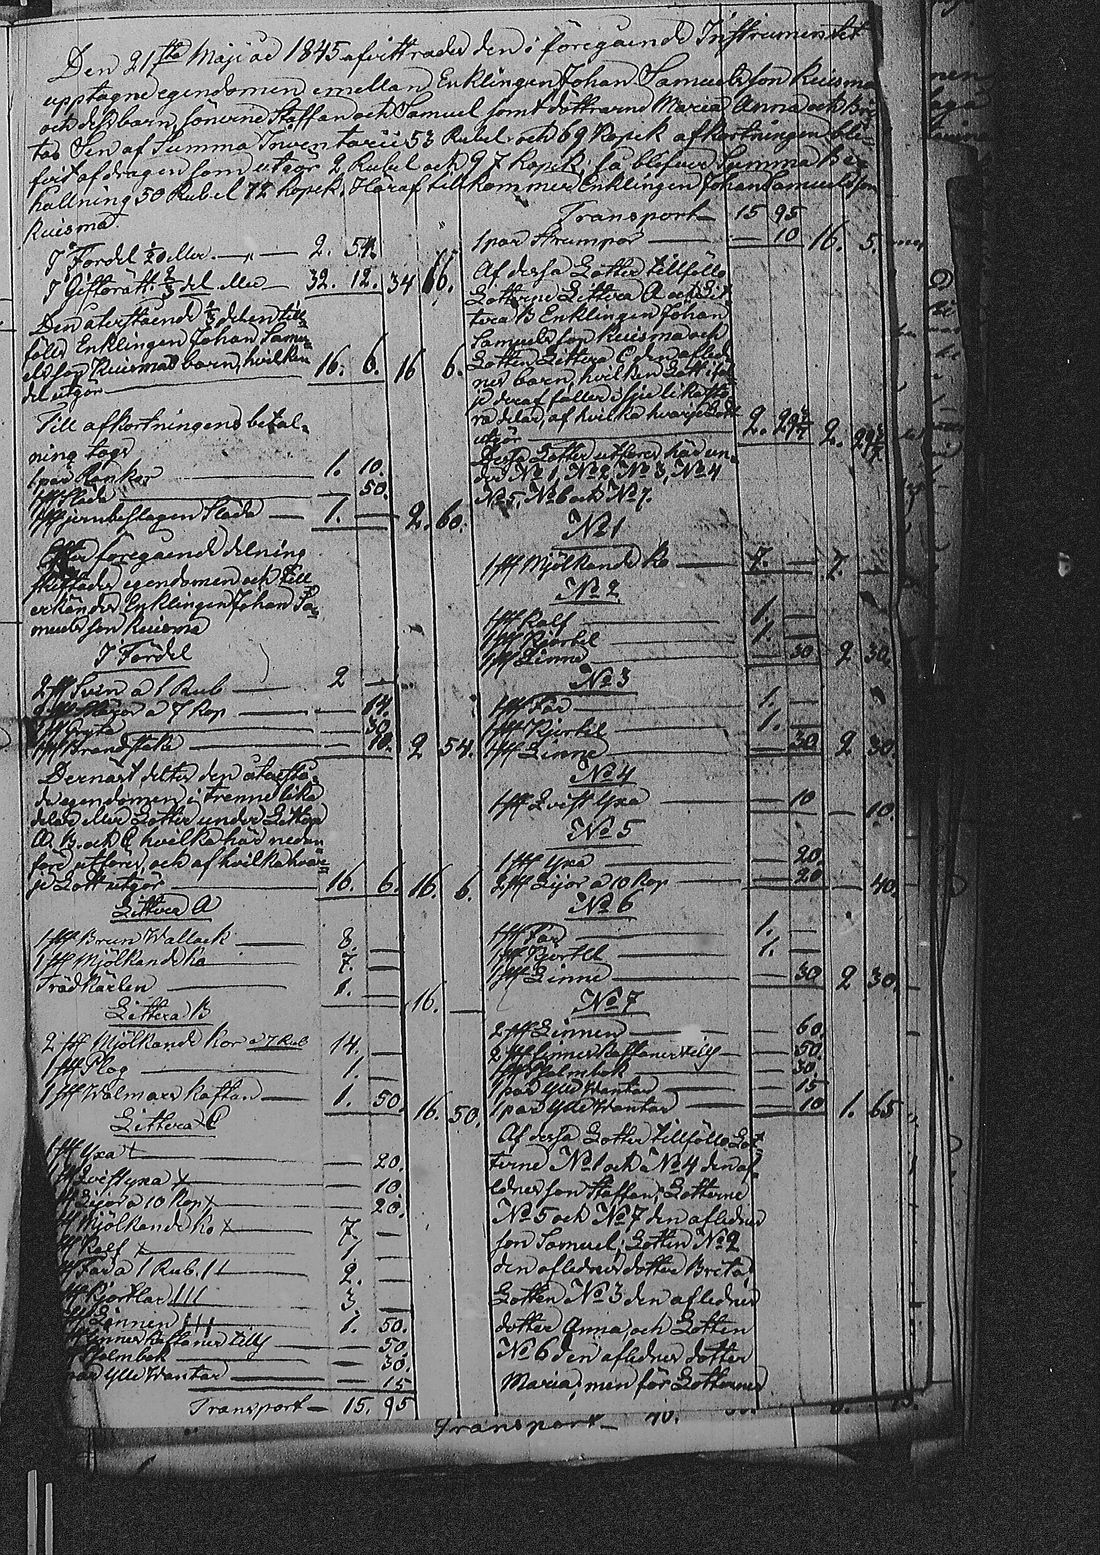 Den 21sta Maji ad 1845 afvittrades den i föregående Instrumentet
upptagne egendomen emellan Enklingen Johan Samuelsson Ruisma
och dess barn, sönerne Staffan och Samuel samt döttrarne Maria Anna och Bri-
ta. Sen af Summa Inventarii 53 Rubel och 69 Kopek afkortningen bli-
fvit afdragen som utgör 2 Rubel och 97 Kopek, så blefwer Summa Be-
hållning 50 Rubel 72 Kopek. Häraf tillkommer Enklingen Johan Samuelsson
Ruisma.
I Fördel 1/20 eller — 2. 54.
I Giftorätt 2/3 del eller — 32. 12. 34 66.
Den återstående 1/3 delen till-
faller Enklingen Johan Samu-
elsson Ruismas barn, hvilken
del utgör — 16. 6. 16 6.
Till afkortningens betal-
ning togs
1 par Rankor — 1. 10.
1 st Släda — 50.
1 st jernbeslagen Släda — 1. — 2. 60.
föregående delning
skiftades egendomen och till
erkändes Enklingen Johan Sa-
muelsson Ruisma
I Fördel
2 st Svin a 1 Rub — 2 —
a 7 Kop — 14.
1 st Gryta — 30.
1 st Brandstake — 10. 2 54.
Dernäst deltes den återstå-
de egendomen i trenne lika
delar eller Lotter under Littera
A. B. och C hvilka här nedan
före utföres, och af hvilka hvar-
je Lott utgör — 16. 6. 16. 6.
Littera A
1 st Brun Wallack — 8. —
1 st Mjölkande Ko — 7. —
Trädkärlen — 1. — 16. —
Littera B
2 st Mjölkande Kor a 7 Rub 14. —
1 st Plog — 1. —
1 st Walmars Kaftan — 1. 50. 16. 50.
Littera C
1 st Yxa — 20.
1 st Qvistyxa x — 10.
2 st Lijor a 10 Kop x — 20.
1 st Mjölkande Ko x — 7. —
1 st Kalf x — 1 —
2 st Får a 1 Rub. — 2. —
3 st Kjortlar — 3. —
st Linnen — 1. 50.
st Kaftaner — 50.
st — 30.
1 par Ylle Wantar — 15
Transport — 15. 95
Transport — 15 95
1 par Strumpor — 10 16. 5.
Af dessa Lotter tillföllo
Lotterne Littera A och Lit-
tera B Enklingen Johan
Samuelsson Ruisma och
Lotten Littera C den aflid-
nes barn, hvilken Lott i sju
deraf faller i sju lika sto-
ra delar, af hvilka hvarje Lott
utgör — 2. 29 2/7 2. 29 2/7
Desse Lotter utföres här un-
der No 1, No 2, No 3, No 4
No 5, No 6 och No 7.
No 1
1 st Mjölkande Ko — 7. — 7. —
No 2
1 st Kalf — 1. —
1 st Kjortel — 1. —
1 st Linne — 30 2 30.
No 3
1 st Får — 1. —
1 st Kjortel — 1. —
1 st Linne — 30 2 30.
No 4
1 st Qvist Yxa — 10 — 10.
No 5
1 st Yxa — 20.
2 st Lijor a 10 Kop — 20 — 40.
No 6
1 st Får — 1. —
1 st Kjortel — 1. —
1 st Linne — 30 2 30.
No 7
2 st Linnen — 60.
2 st Kaftaner — 50.
1 st — 30.
1 par Ylle Wantar — 15
1 par Ylle Wantar — 10 1. 65
Af dessa Lotter tillföllo Lot-
terne No 1 och No 4 den af-
lednes son Staffan; Lotterne
No 5 och No 7 den aflednes
son Samuel; Lotten No 2
den aflednes dotter Brita
Lotten No 3 den aflednes
dotter Anna, och Lotten
No 6 den aflednes dotter
Maria; men för Lotterne
Transport —